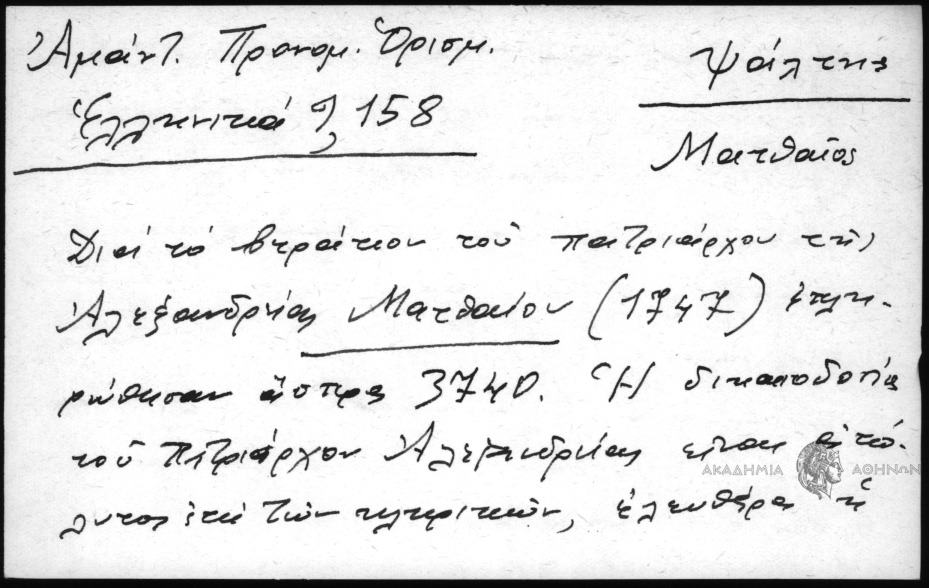 Ἀμάντ. Προνομ. Ὁρισμ.
Ψάλτης
Ἑλληνικά 9, 158
Ματθαῖος
Διά τό βεράτιον τοῦ πατριάρχου τῆς
Ἀλεξανδρείας Ματθαίου (1747) ἐπλη-
ρώθησαν ἄσπρα 3740. Ἡ δικαιοδοσία
τοῦ Πατριάρχου Ἀλεξανδρείας εἶναι ἀπό-
λυτος ἐπί τῶν κληρικῶν, ἐλευθέρα ἡ
ΑΚΑΔΗΜΙΑ ΑΘΗΝΩΝ